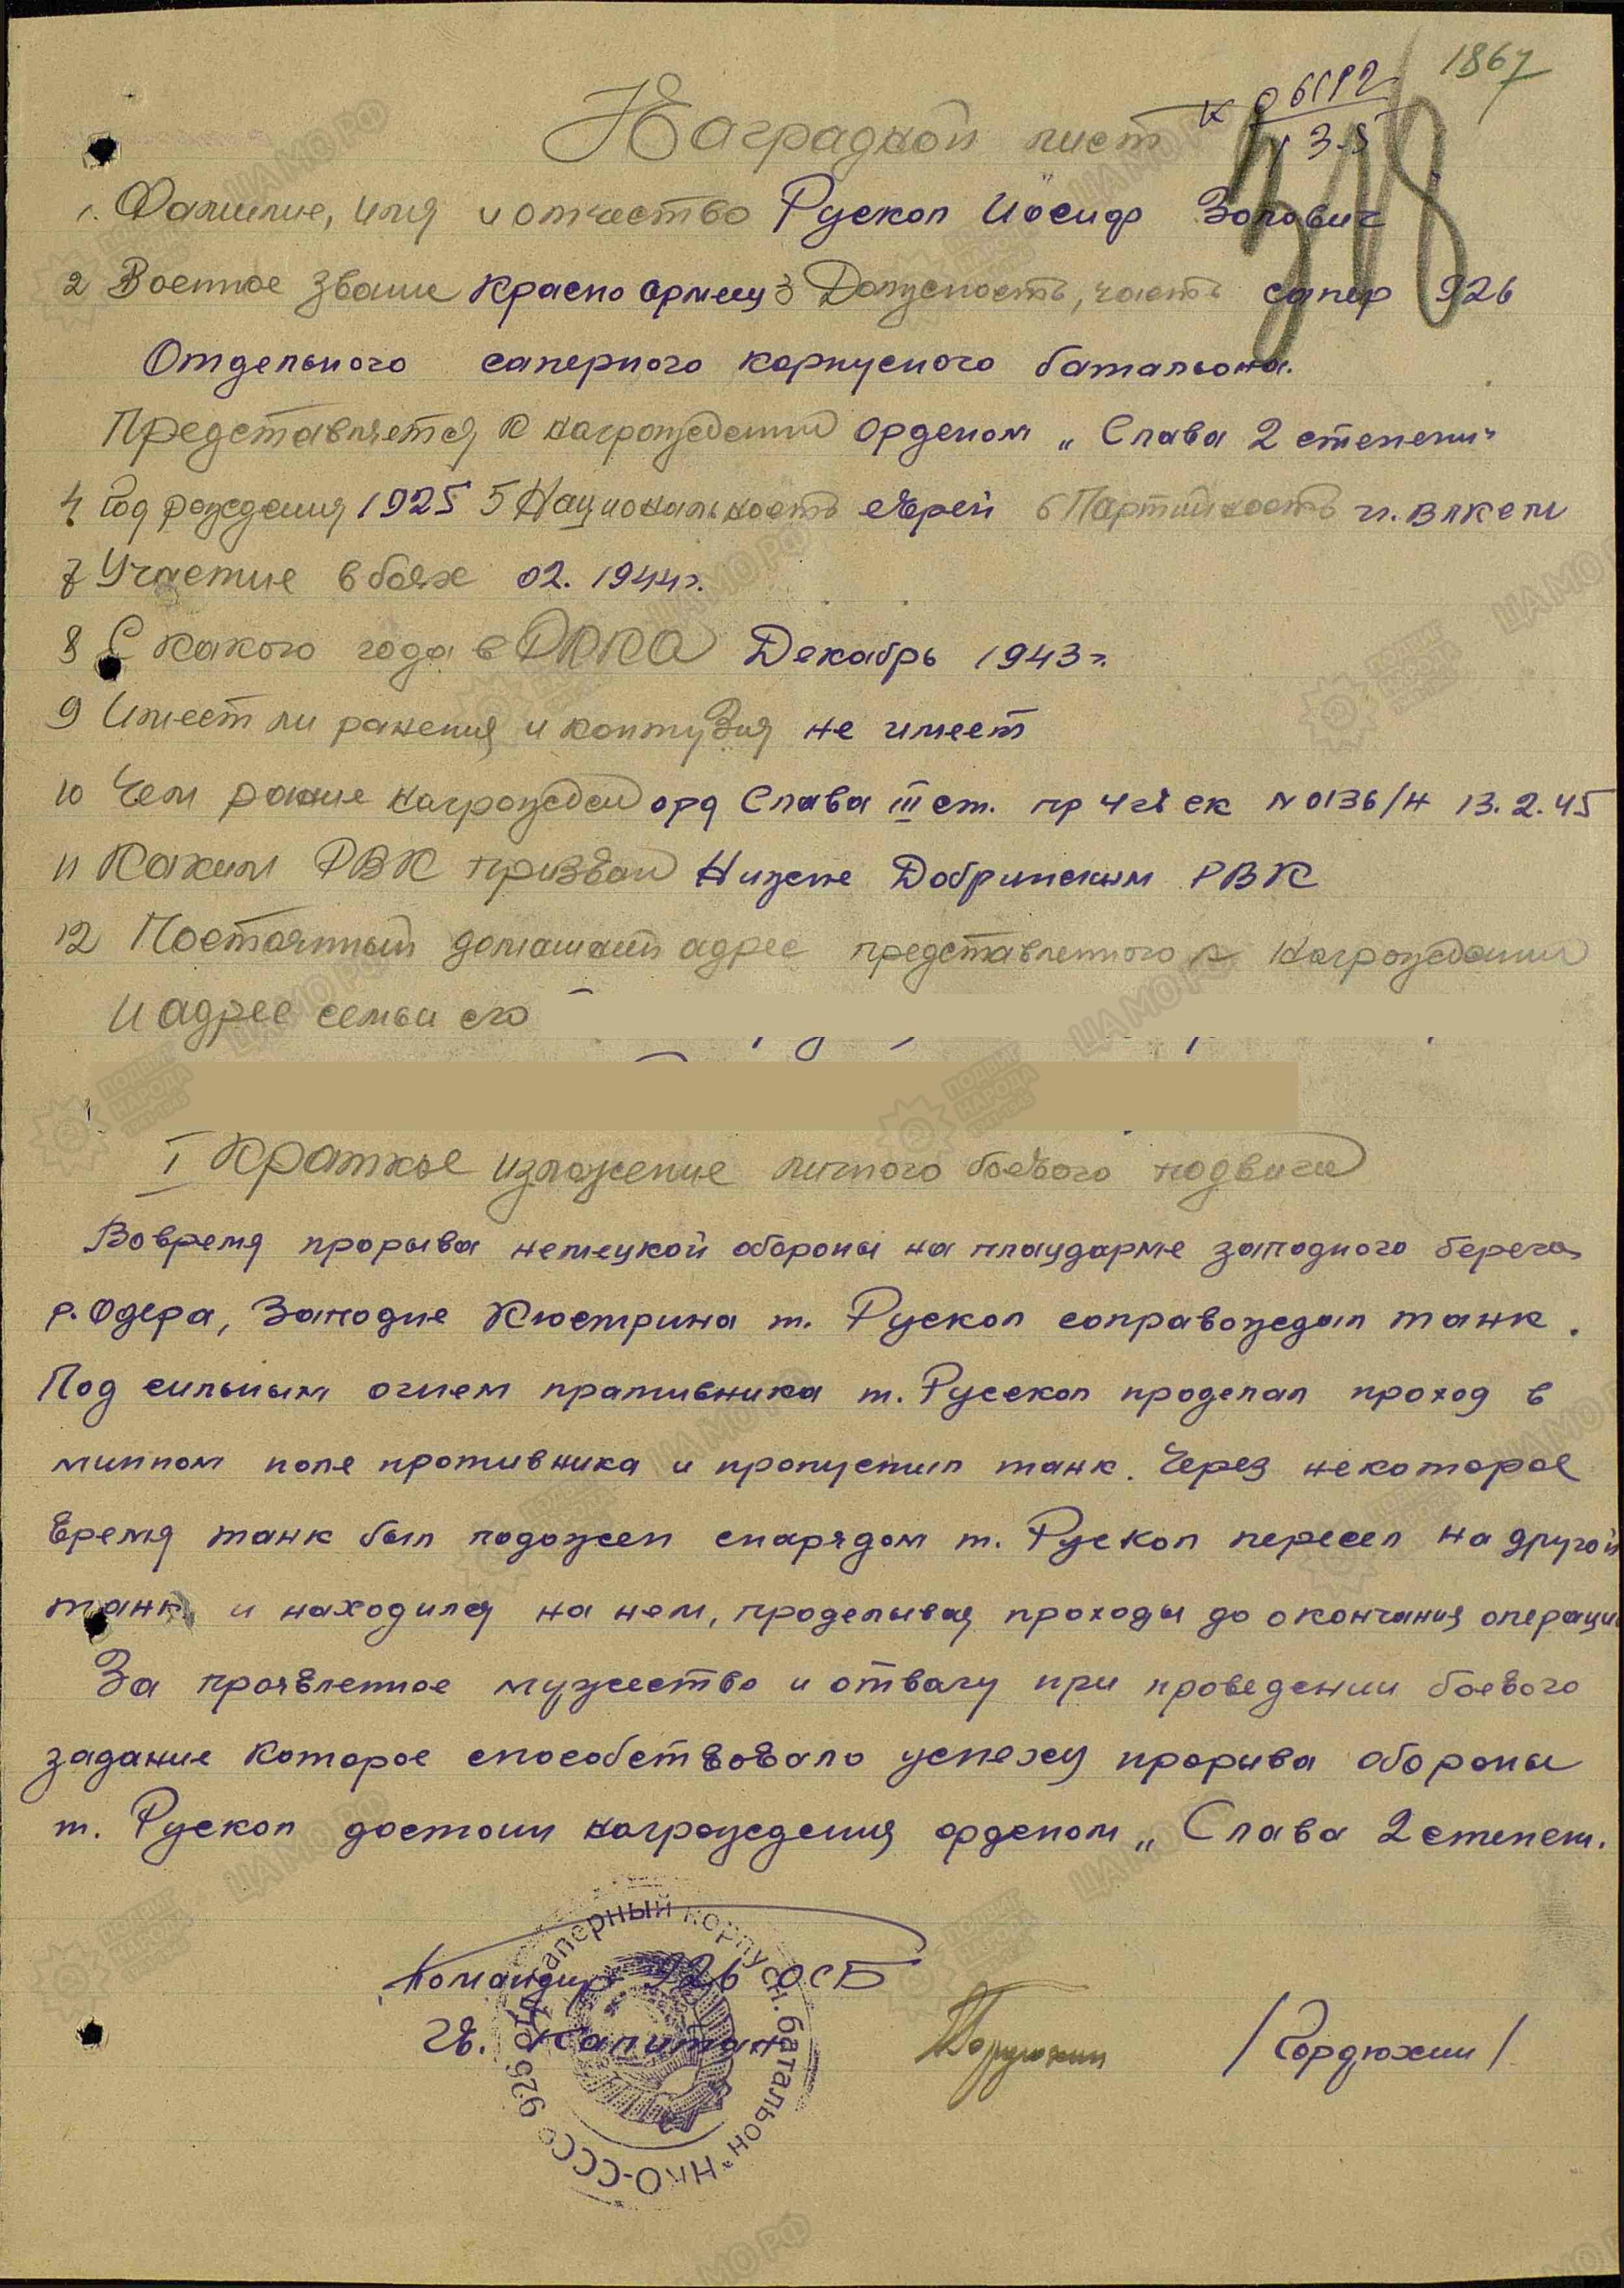 1867
318
Наградной лист
1. Фамилие, имя и отчество Рускол Иосиф Золович
2 Военное звание Красно Армеец 3 Должность, часть сапер 926
Отдельного саперного корпусного батальона.
Представляется к награждению Орденом „Слава 2 степени"
4 Год рождения 1925 5 Национальность еврей 6 Партийность чл. ВЛКСМ
7 Участие в боях 02. 1944г.
8 С какого года в РККА Декабрь 1943г.
9 Имеет ли ранения и контузия не имеет
10 Чем ранее награжден орд Слава III ст. пр 4 гв ск №0136/н 13.2.45
11 Каким РВК призван Нижне Добринским РВК
12 Постоянный домашний адрес представленного к награждению
и адрес семьи его
I Краткое изложение личного боевого подвига
Вовремя прорыва немецкой обороны на плаударме западного берега
р. Одера, Западне Кюстрина т. Рускол соправождал танк.
Под сильным огнем пративника т. Русскол проделал проход в
минном поле противника и пропустил танк. Через некоторое
время танк был подожжен снарядом т. Рускол пересел на другой
танк и находился на нем, проделывая проходы до окончания операции
За проявленное мужество и отвагу при проведении боевого
задание которое способствовало успеху прорыва обороны
т. Рускол достоин награждения орденом „Слава 2 степени.
Командир 926 ОСБ
Гв. Капитан /Гордюхин/
НКО-СССР 926 отд. саперный корпусн. батальон
ПОДВИГ НАРОДА 1941-1945
ЦАМО РФ